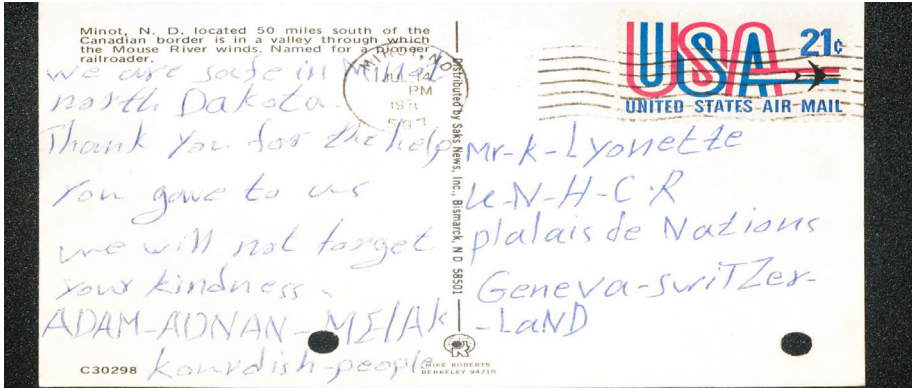 Minot, N. D. located 50 miles south of the
Canadian border is in a valley through which
the Mouse River winds. Named for a pioneer
railroader.
we are safe in Minot
north Dakota.
Thank you for the help
you gave to us
we will not forget
your kindness.
ADAM-ADNAN-MELAK
kourdish-people
C30298
Distributed by Saks News, Inc., Bismarck, N D 58501
MIKE ROBERTS
BERKELEY 94710
MINOT, ND
JUL
PM
USA 21¢
UNITED STATES AIR MAIL
Mr-k-Lyonette
U-N-H-C-R
plalais de Nations
Geneva-swiTZer-
-LaND